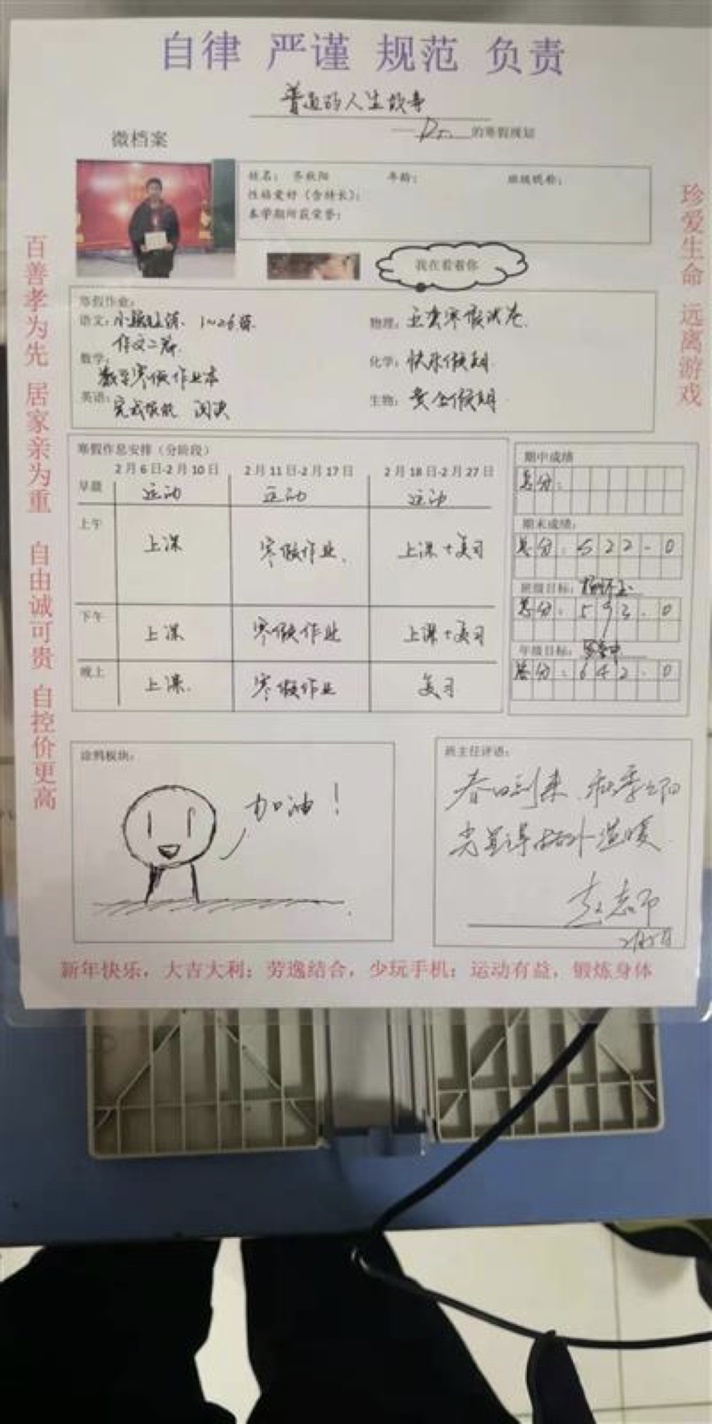 自律 严谨 规范 负责
普通的人生故事
的寒假规划
微档案
姓名： 年龄： 班级昵称：
性格爱好（含特长）：
本学期所获荣誉：
我在看着你
百善孝为先 居家亲为重 自由诚可贵 自控价更高
珍爱生命 远离游戏
寒假作业：
语文： 1~26篇
作文二篇
数学：
数学寒假作业本
英语：
完成报纸 阅读
物理：五套寒假试卷
化学：快乐假期
生物：黄金假期
寒假作息安排（分阶段）
2月6日-2月10日 2月11日-2月17日 2月18日-2月27日
早晨 运动 运动 运动
上午 上课 寒假作业 上课+复习
下午 上课 寒假作业 上课+复习
晚上 上课 寒假作业 复习
期中成绩
总分：
期末成绩：
总分：522.0
班级目标：
总分：593.0
年级目标：
总分：642.0
涂鸦板块：
加油！
班主任评语：
春日到来，秋季之阳
光显得格外温暖
赵老师
2月5日
新年快乐，大吉大利；劳逸结合，少玩手机；运动有益，锻炼身体